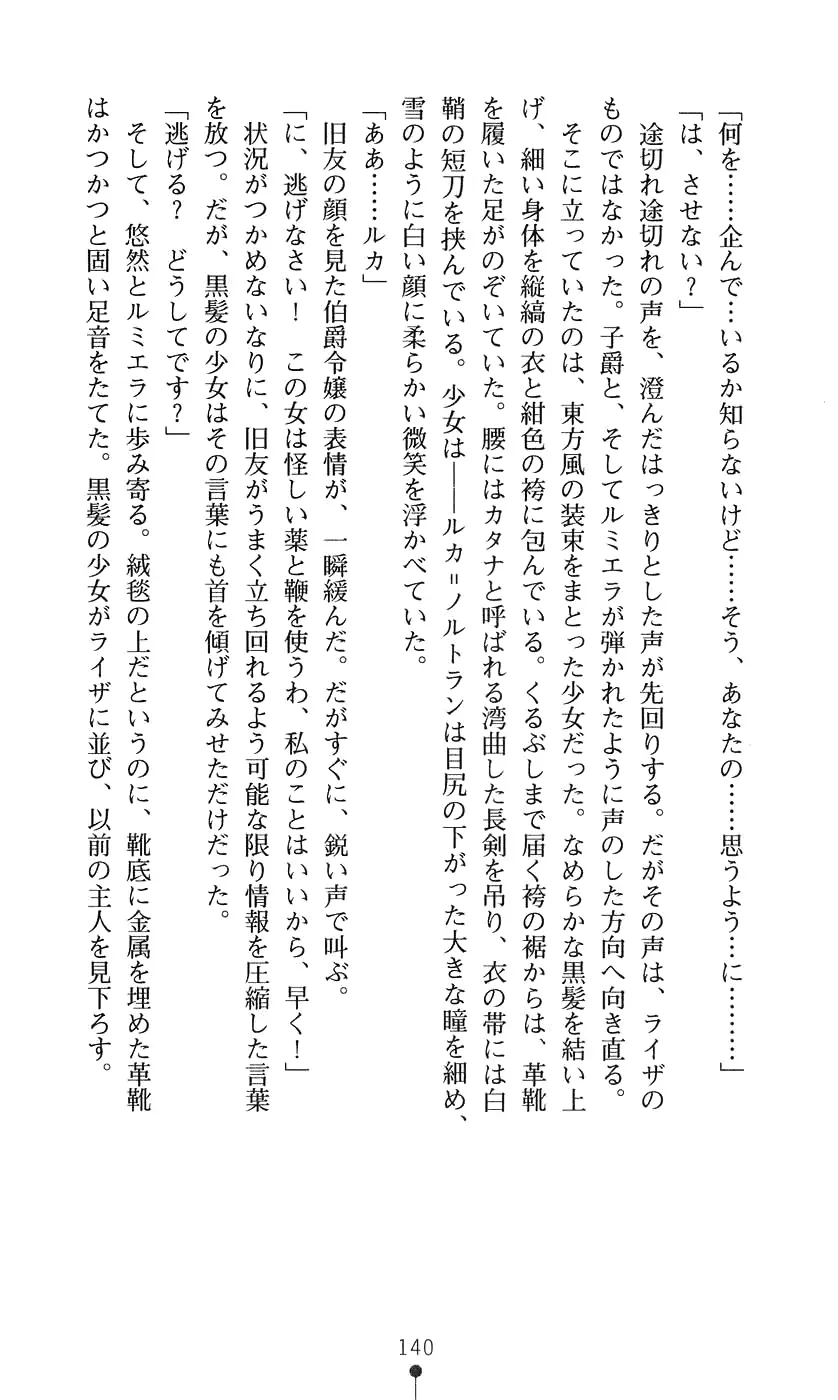 「何を……企んで…いるか知らないけど……そう、あなたの……思うよう…に………」
「は、させない？」
　途切れ途切れの声を、澄んだはっきりとした声が先回りする。だがその声は、ライザの
ものではなかった。子爵と、そしてルミエラが弾かれたように声のした方向へ向き直る。
　そこに立っていたのは、東方風の装束をまとった少女だった。なめらかな黒髪を結い上
げ、細い身体を縦縞の衣と紺色の袴に包んでいる。くるぶしまで届く袴の裾からは、革靴
を履いた足がのぞいていた。腰にはカタナと呼ばれる湾曲した長剣を吊り、衣の帯には白
鞘の短刀を挟んでいる。少女は――ルカ＝ノルトランは目尻の下がった大きな瞳を細め、
雪のように白い顔に柔らかい微笑を浮かべていた。
「ああ……ルカ」
　旧友の顔を見た伯爵令嬢の表情が、一瞬緩んだ。だがすぐに、鋭い声で叫ぶ。
「に、逃げなさい！　この女は怪しい薬と鞭を使うわ、私のことはいいから、早く！」
　状況がつかめないなりに、旧友がうまく立ち回れるよう可能な限り情報を圧縮した言葉
を放つ。だが、黒髪の少女はその言葉にも首を傾げてみせただけだった。
「逃げる？　どうしてです？」
　そして、悠然とルミエラに歩み寄る。絨毯の上だというのに、靴底に金属を埋めた革靴
はかつかつと固い足音をたてた。黒髪の少女がライザに並び、以前の主人を見下ろす。
140